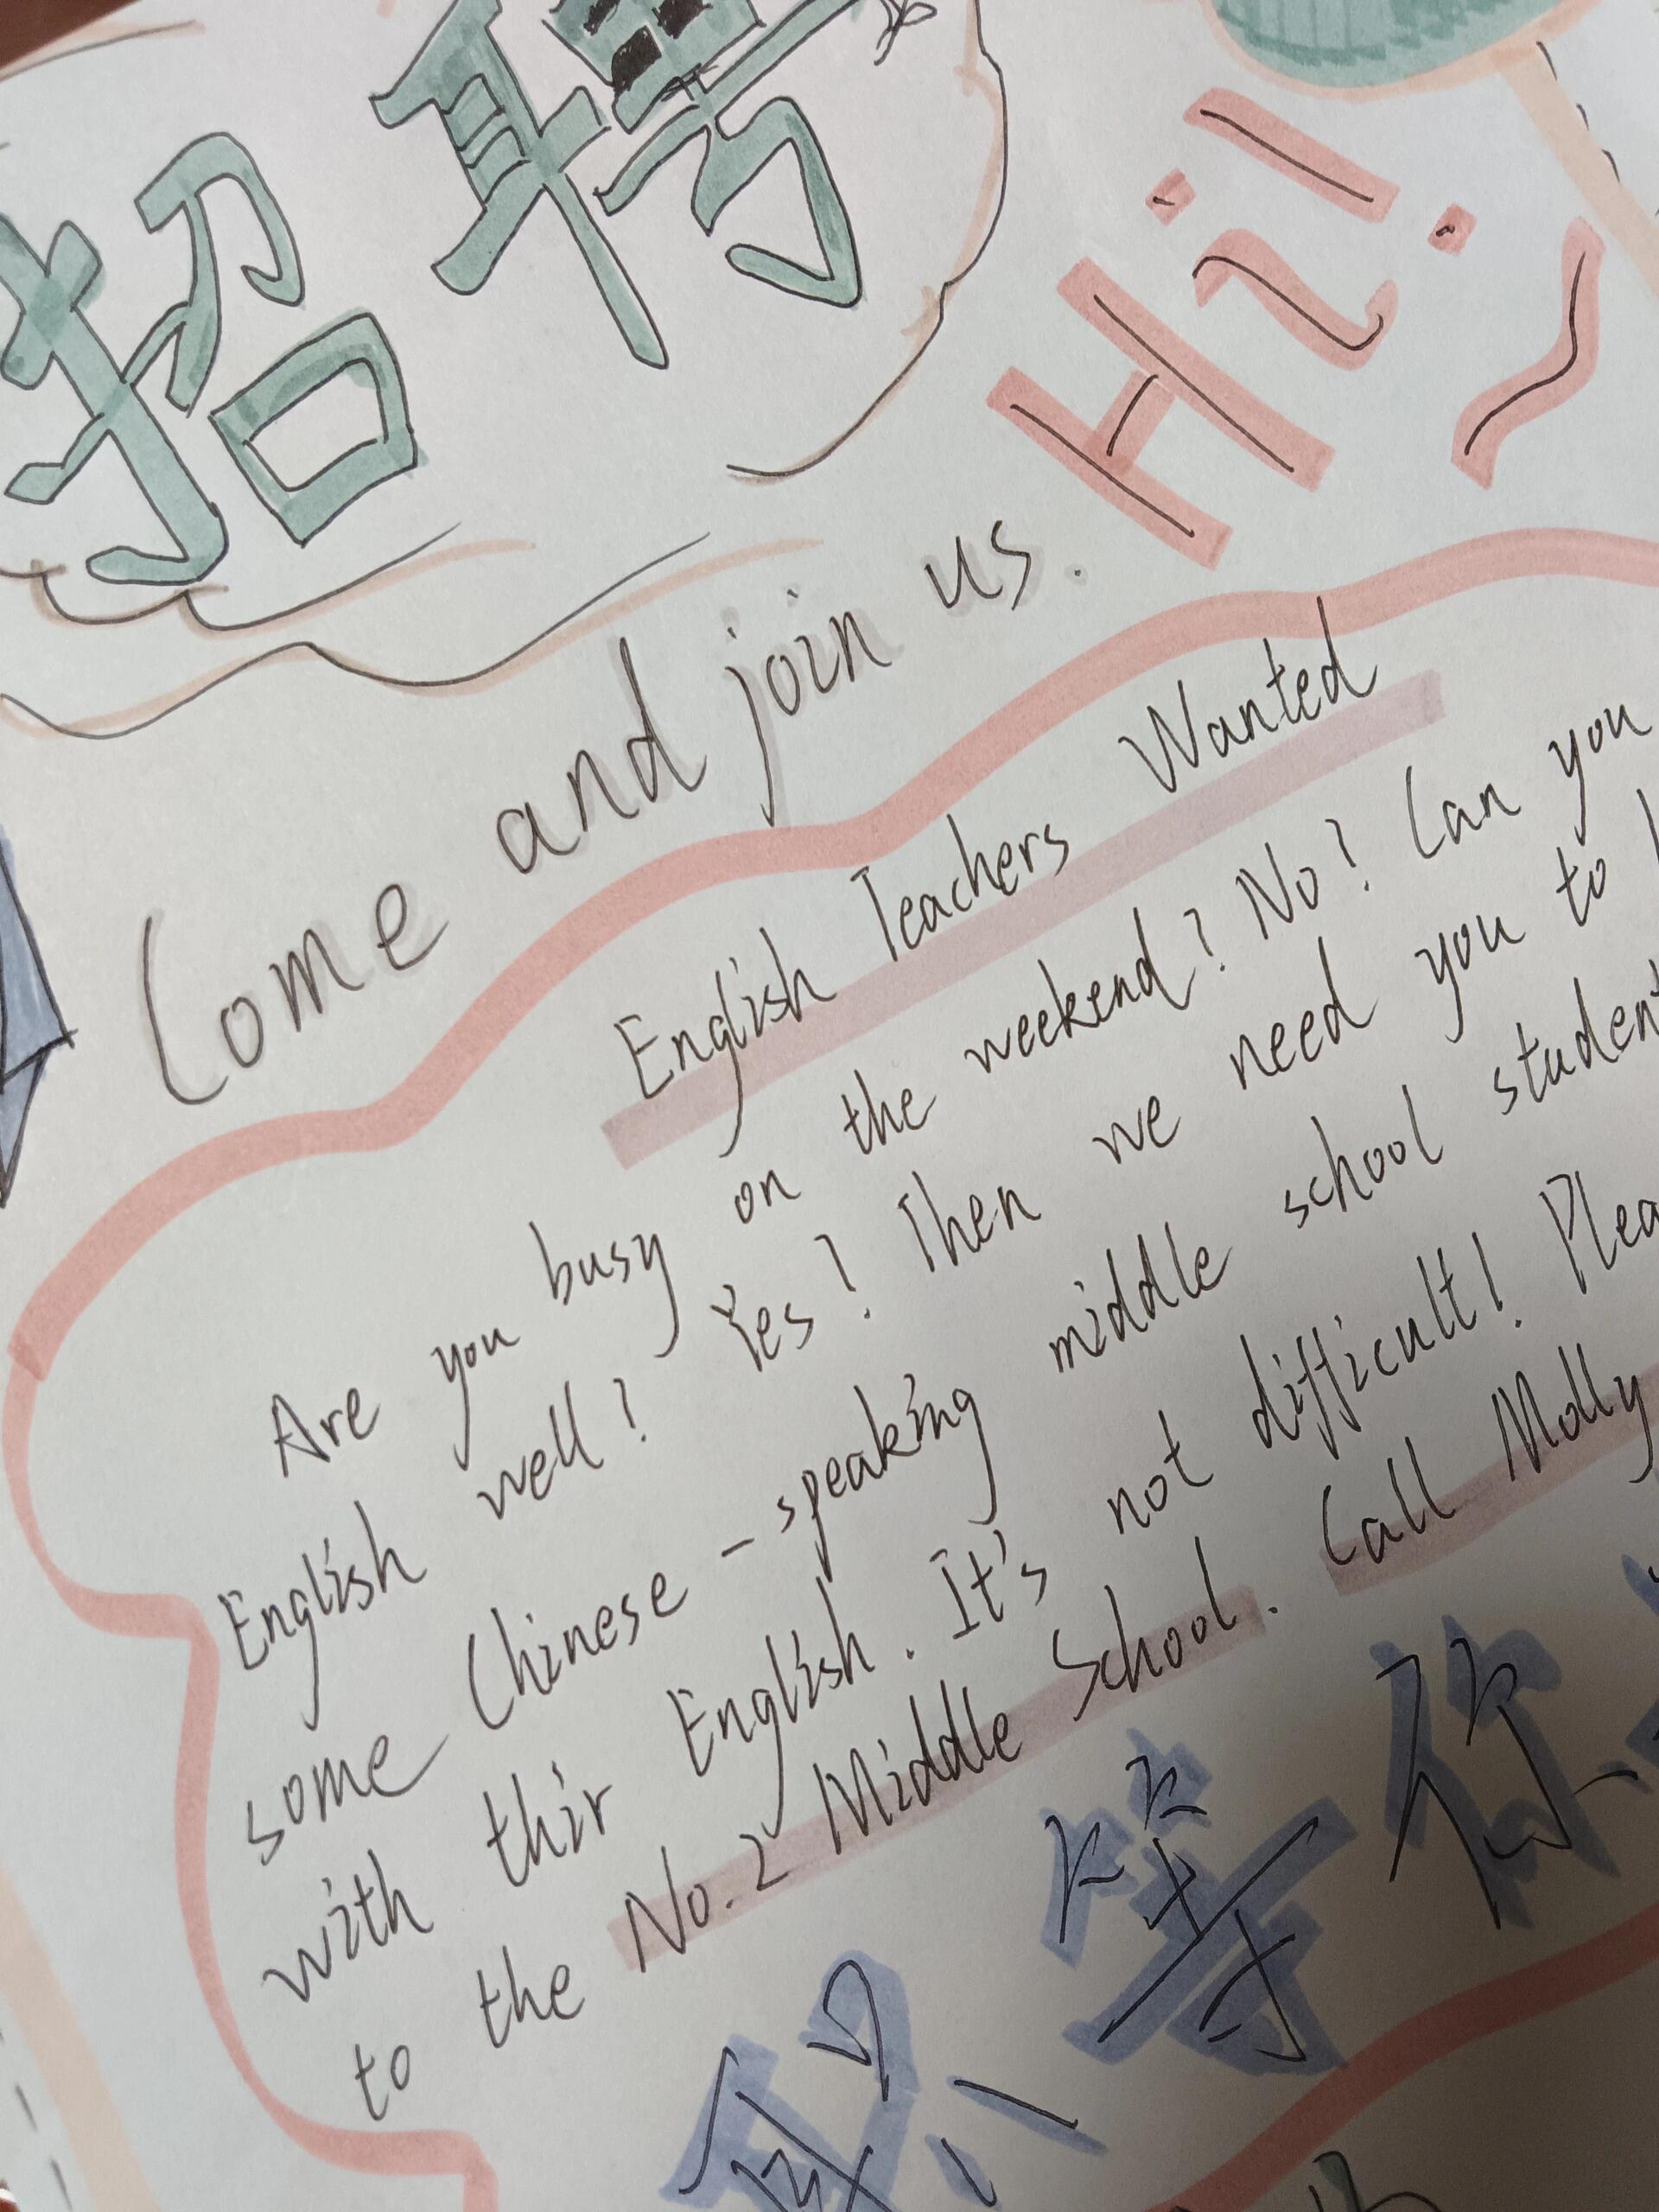 招聘
Hi!
Come and join us.
English Teachers Wanted
Are you busy on the weekend? No? Can you
English well? Yes? Then we need you to
some Chinese-speaking middle school student
with thir English. It's not difficult! Plea
to the No.2 Middle School. Call Molly
只等你